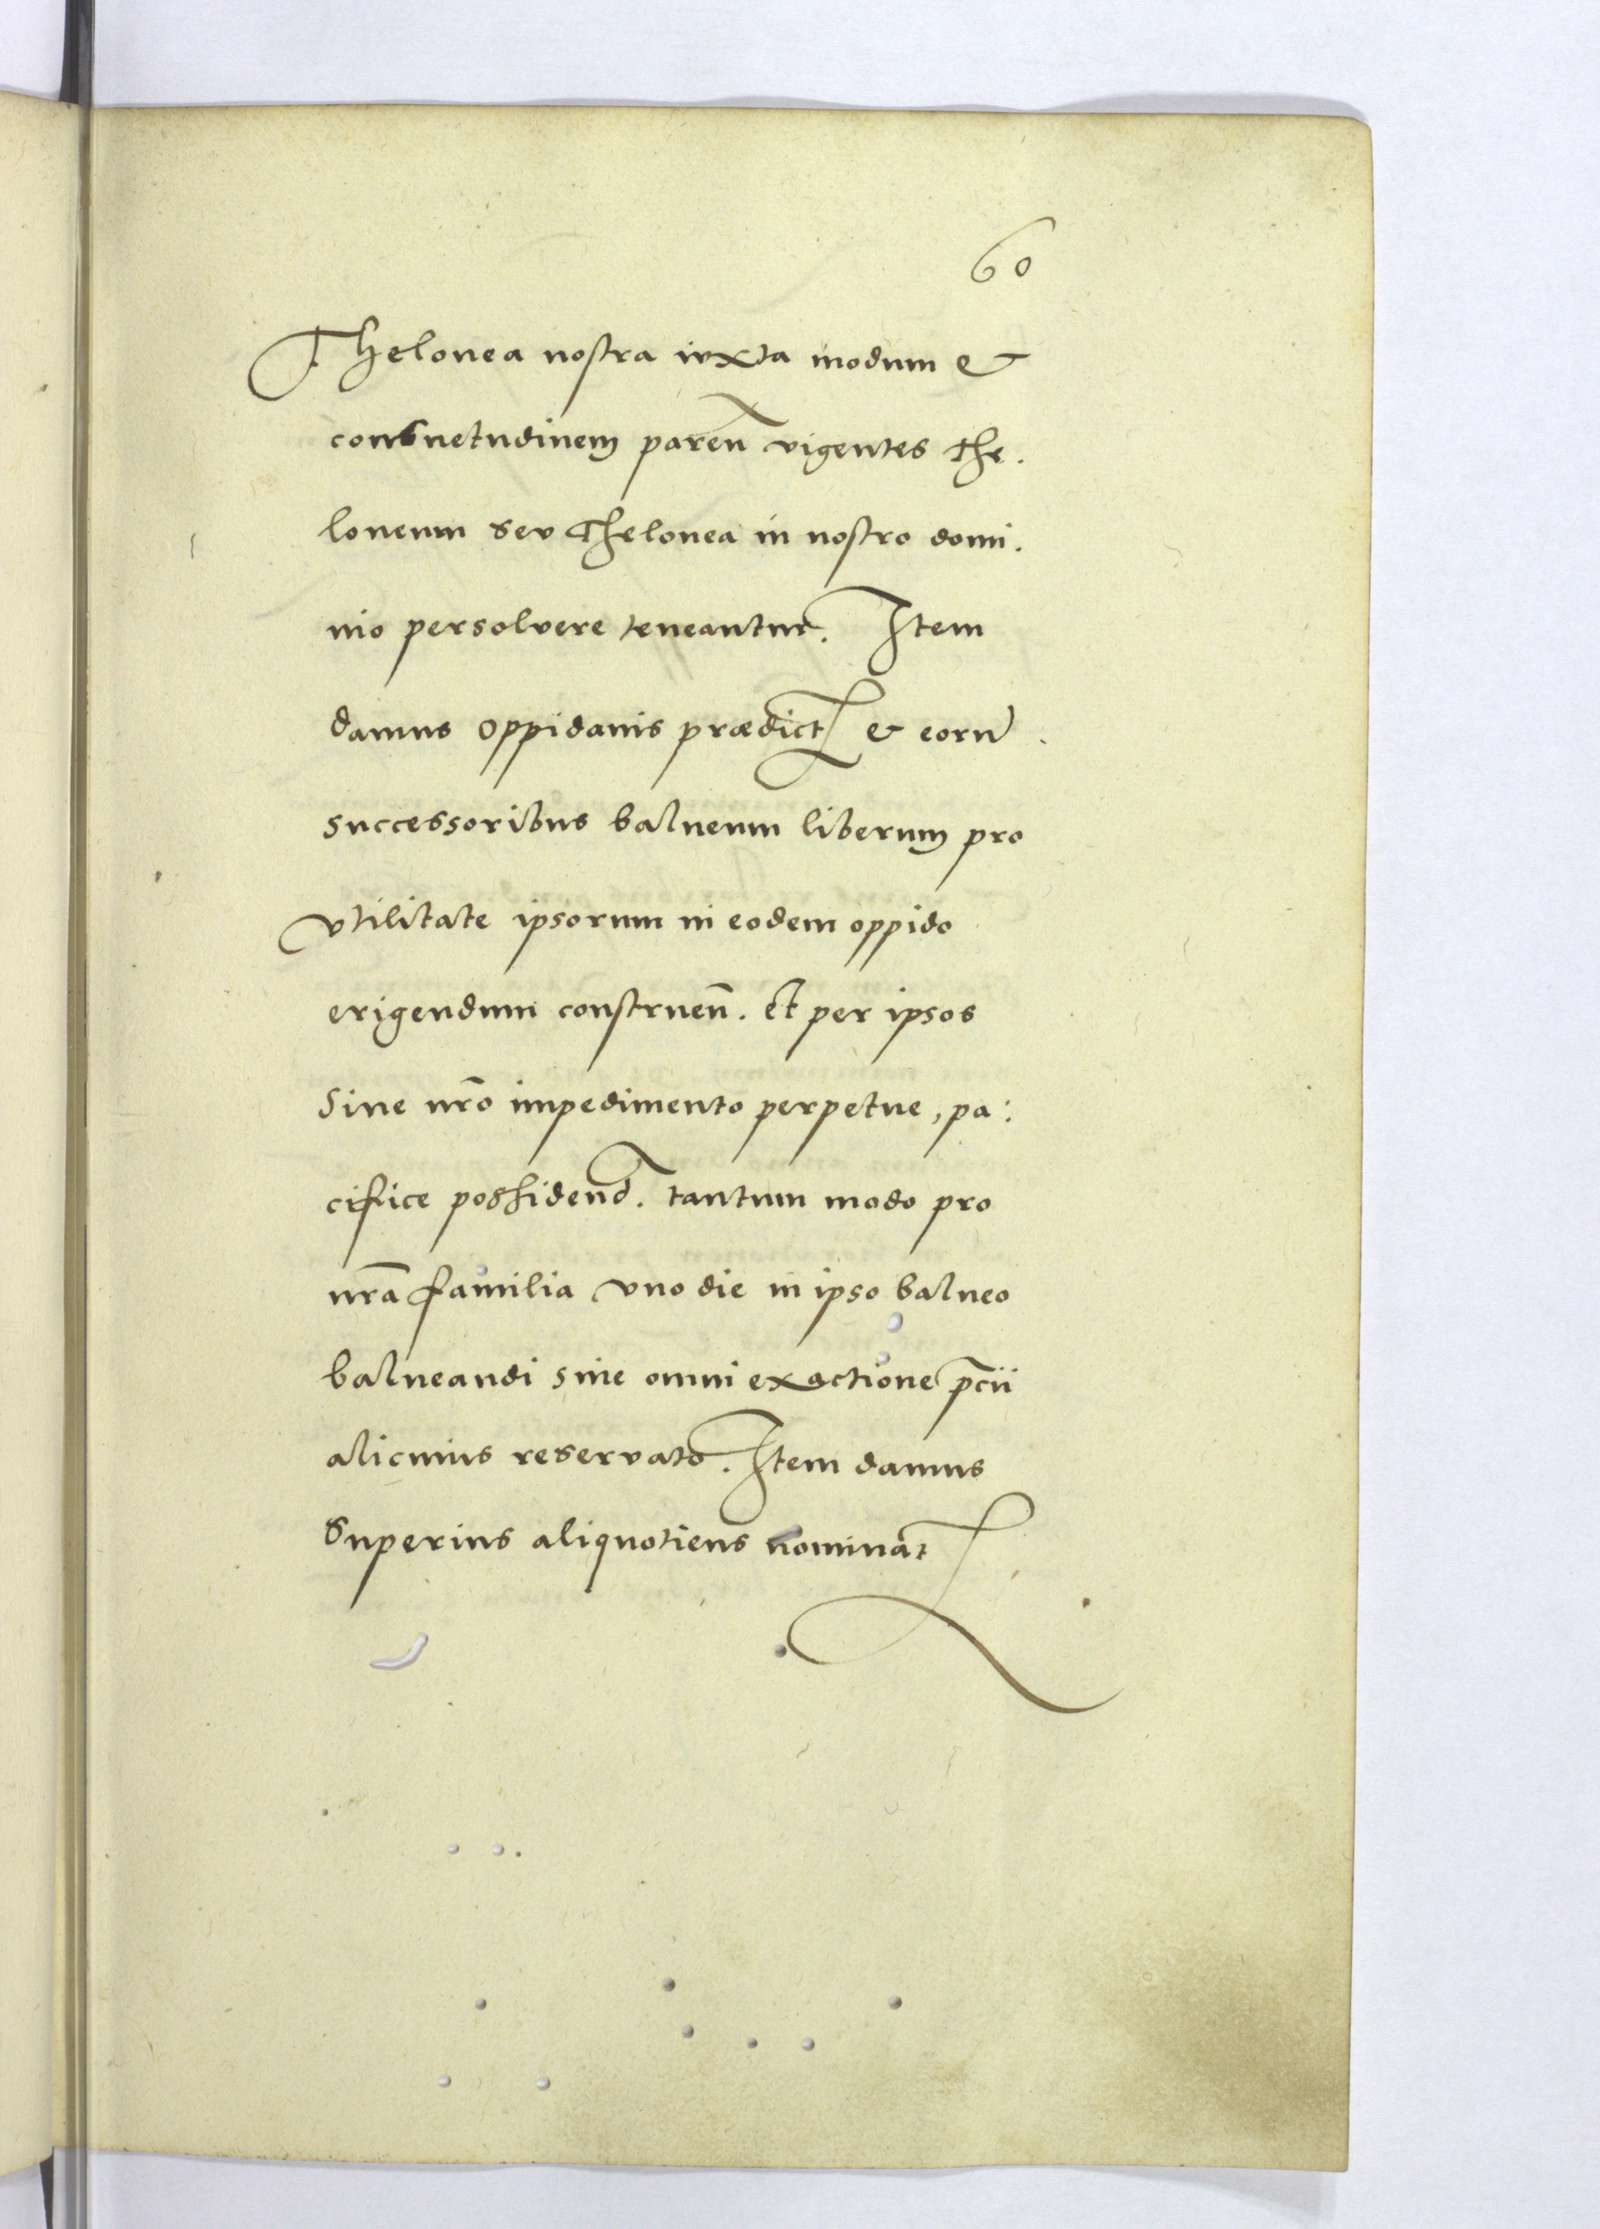 60
Thelonea nostra iuxta modum &
consuetudinem paren̄ vigentes the.
loneum seu thelonea in nostro domi.
nio persolvere teneantur. Item
damus oppidanis prædict & eorū
successoribus balneum liberum pro
vtilitate ipsorum in eodem oppido
erigendum construen̄. Et per ipsos
Sine nr̄o impedimento perpetue, pa:
cifice possidend. tantum modo pro
nr̄a familia vno die in ipso balneo
balneandi sine omni exactione p̄cii
alicuius reservato. Item damus
Superius aliquotiens nominat